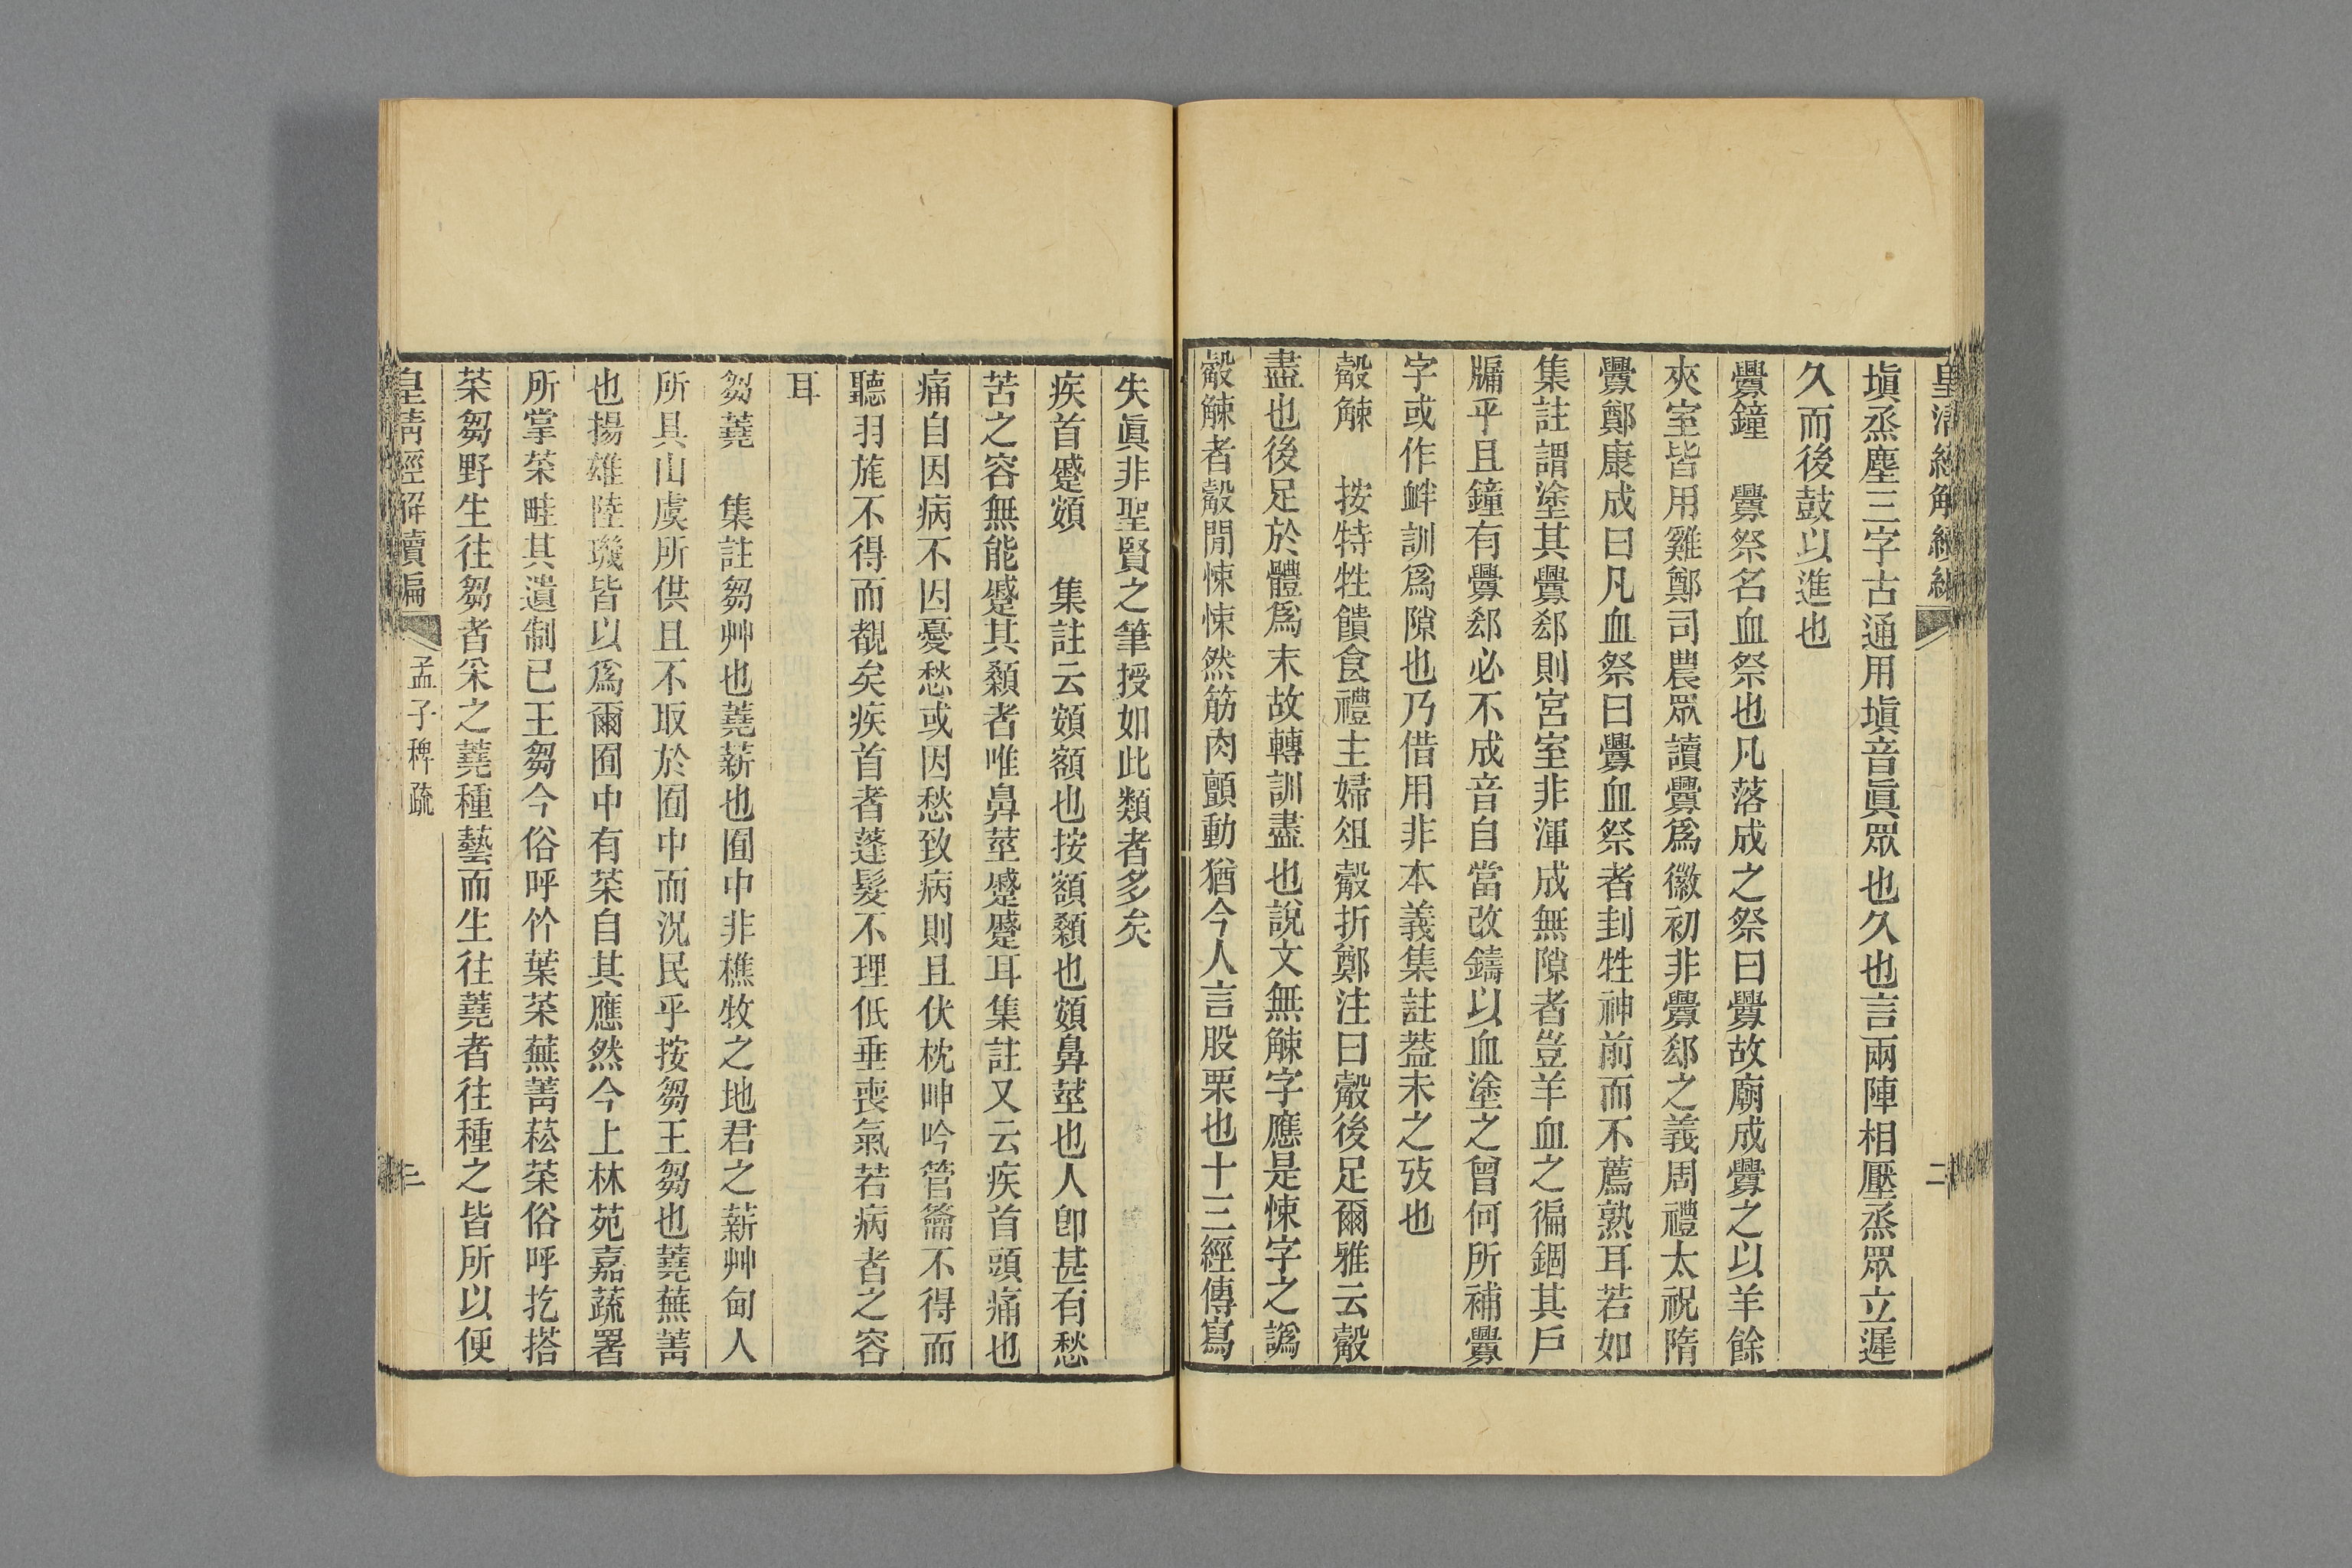 皇清經解續編
二
塡烝塵三字古通用塡音眞眾也久也言兩陣相壓烝眾立遲
久而後鼓以進也
釁鐘　釁祭名血祭也凡落成之祭曰釁故廟成釁之以羊餘
夾室皆用雞鄭司農眾讀釁爲徽初非釁郄之義周禮太祝隋
釁鄭康成曰凡血祭曰釁血祭者刲牲神前而不薦熟耳若如
集註謂塗其釁郄則宮室非渾成無隙者豈羊血之徧錮其戶
牖乎且鐘有釁郄必不成音自當改鑄以血塗之曾何所補釁
字或作衅訓爲隙也乃借用非本義集註葢未之攷也
觳觫　按特牲饋食禮主婦俎觳折鄭注曰觳後足爾雅云觳
盡也後足於體爲末故轉訓盡也說文無觫字應是悚字之譌
觳觫者觳閒悚悚然筋肉顫動猶今人言股栗也十三經傳寫
失眞非聖賢之筆授如此類者多矣
疾首蹙頞　集註云頞額也按額顙也頞鼻莖也人卽甚有愁
苦之容無能蹙其顙者唯鼻莖蹙蹙耳集註又云疾首頭痛也
痛自因病不因憂愁或因愁致病則且伏枕呻吟管籥不得而
聽羽旄不得而覩矣疾首者蓬髮不理低垂喪氣若病者之容
耳
芻蕘　集註芻艸也蕘薪也囿中非樵牧之地君之薪艸甸人
所具山虞所供且不取於囿中而況民乎按芻王芻也蕘蕪菁
也揚雄陸璣皆以爲爾囿中有菜自其應然今上林苑嘉蔬署
所掌菜畦其遺制已王芻今俗呼竹葉菜蕪菁菘菜俗呼扢搭
菜芻野生往芻者采之蕘種藝而生往蕘者往種之皆所以便
皇清經解續編
孟子稗疏
二